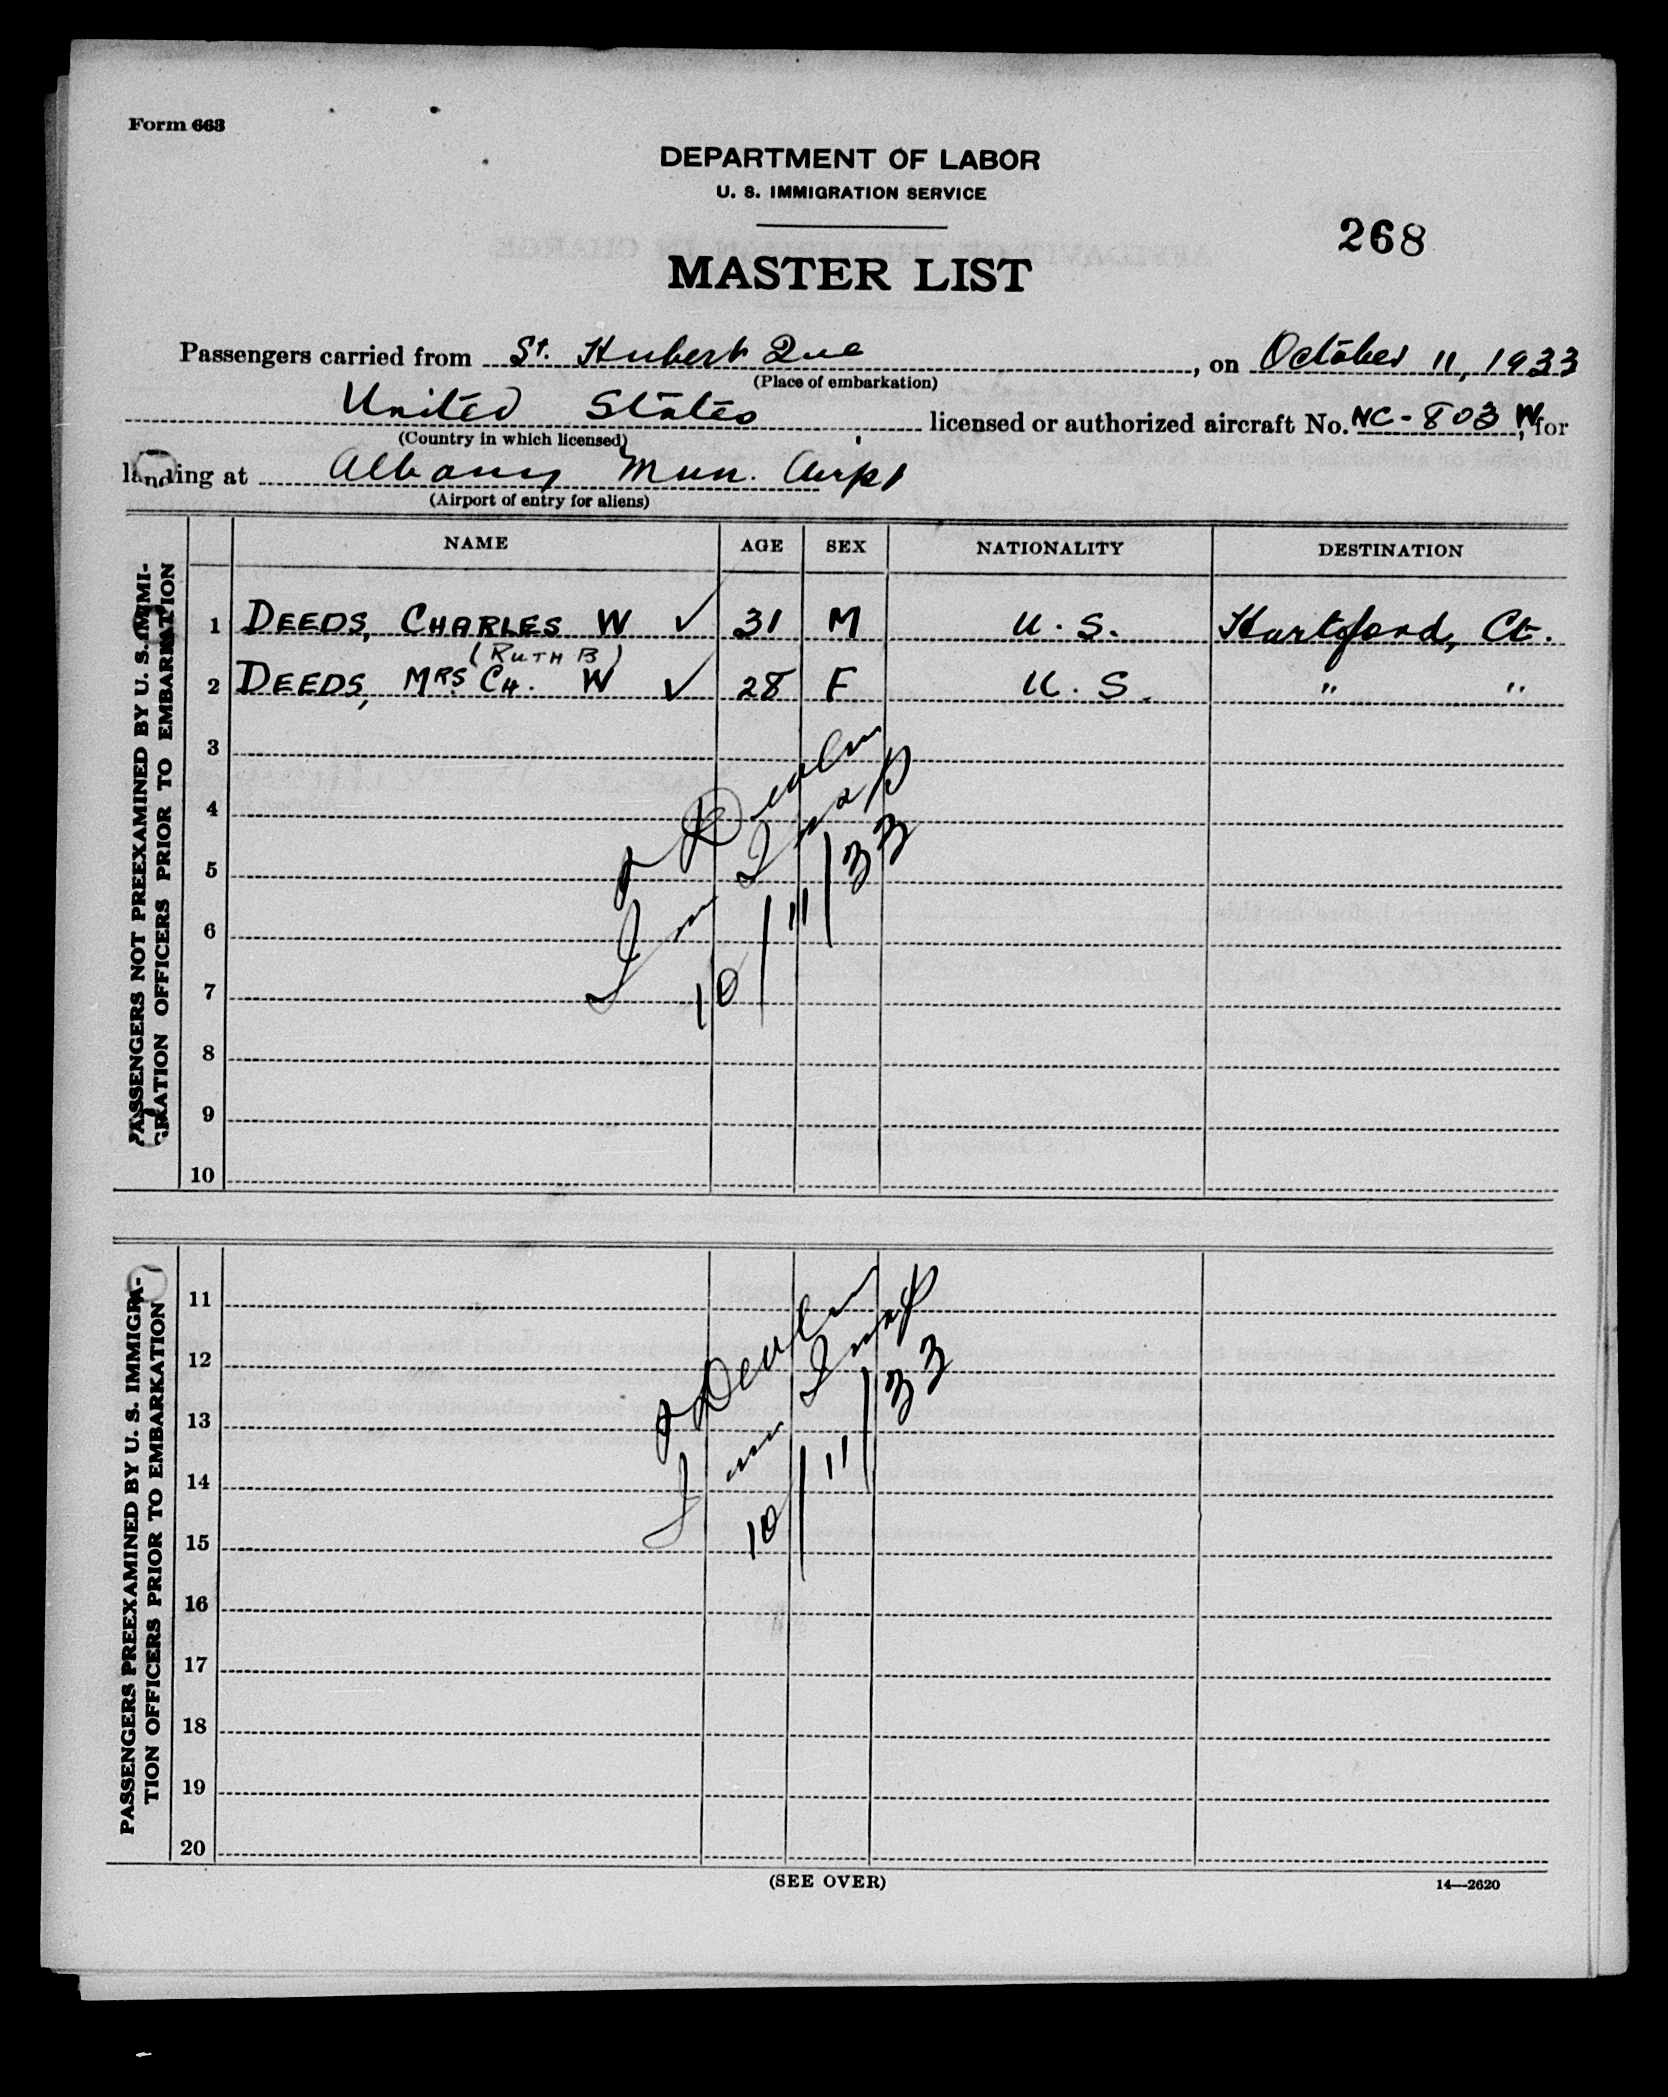 Form 663
DEPARTMENT OF LABOR
U. S. IMMIGRATION SERVICE
268
MASTER LIST
Passengers carried from St. Hubert Que, on October 11, 1933
(Place of embarkation)
United States licensed or authorized aircraft No. NC-803 W, for
(Country in which licensed)
landing at Albany Mun. Airpt
(Airport of entry for aliens)
PASSENGERS NOT PREEXAMINED BY U. S. IMMI-
GRATION OFFICERS PRIOR TO EMBARKATION
NAME AGE SEX NATIONALITY DESTINATION
1 DEEDS, CHARLES W ✓ 31 M U.S. Hartford, Ct.
(RUTH B)
2 DEEDS, MRS. CH. W ✓ 28 F U.S. " "
3
4
5
6
7
8
9
10
Devlin
Imm Insp
10/11/33
PASSENGERS PREEXAMINED BY U. S. IMMIGRA-
TION OFFICERS PRIOR TO EMBARKATION
11
12
13
14
15
16
17
18
19
20
Devlin
Imm Insp
10/11/33
(SEE OVER)
14—2620